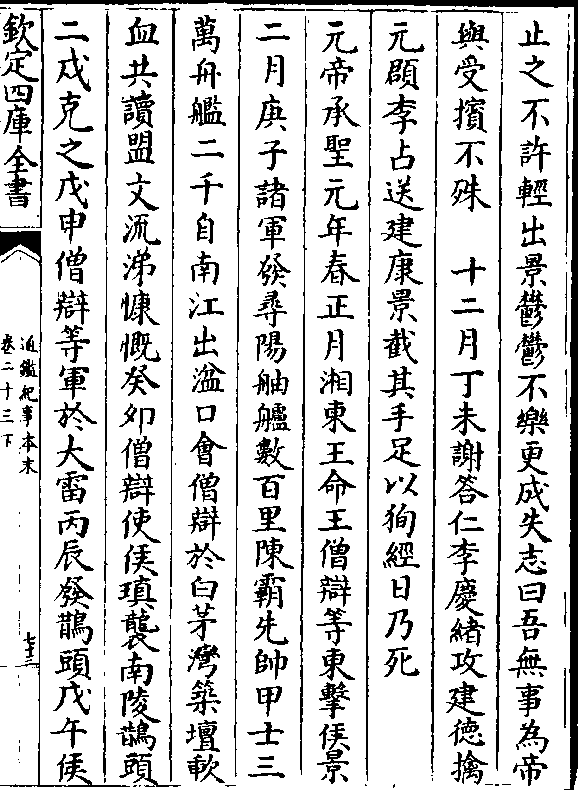 止之不許輕出景鬱鬱不樂更成失志曰吾無事為帝
與受擯不殊　十二月丁未謝答仁李慶緒攻建德擒
元頵李占送建康景截其手足以狥經日乃死
元帝承聖元年春正月湘東王命王僧辯等東擊侯景
二月庚子諸軍發尋陽舳艫數百里陳霸先帥甲士三
萬舟艦二千自南江出湓口會僧辯於白茅灣築壇歃
血共讀盟文流涕慷慨癸卯僧辯使侯瑱襲南陵鵲頭
二戍克之戊申僧辯等軍於大雷丙辰發鵲頭戊午侯
欽定四庫全書
通鑑紀事本末
卷二十三下
七十三